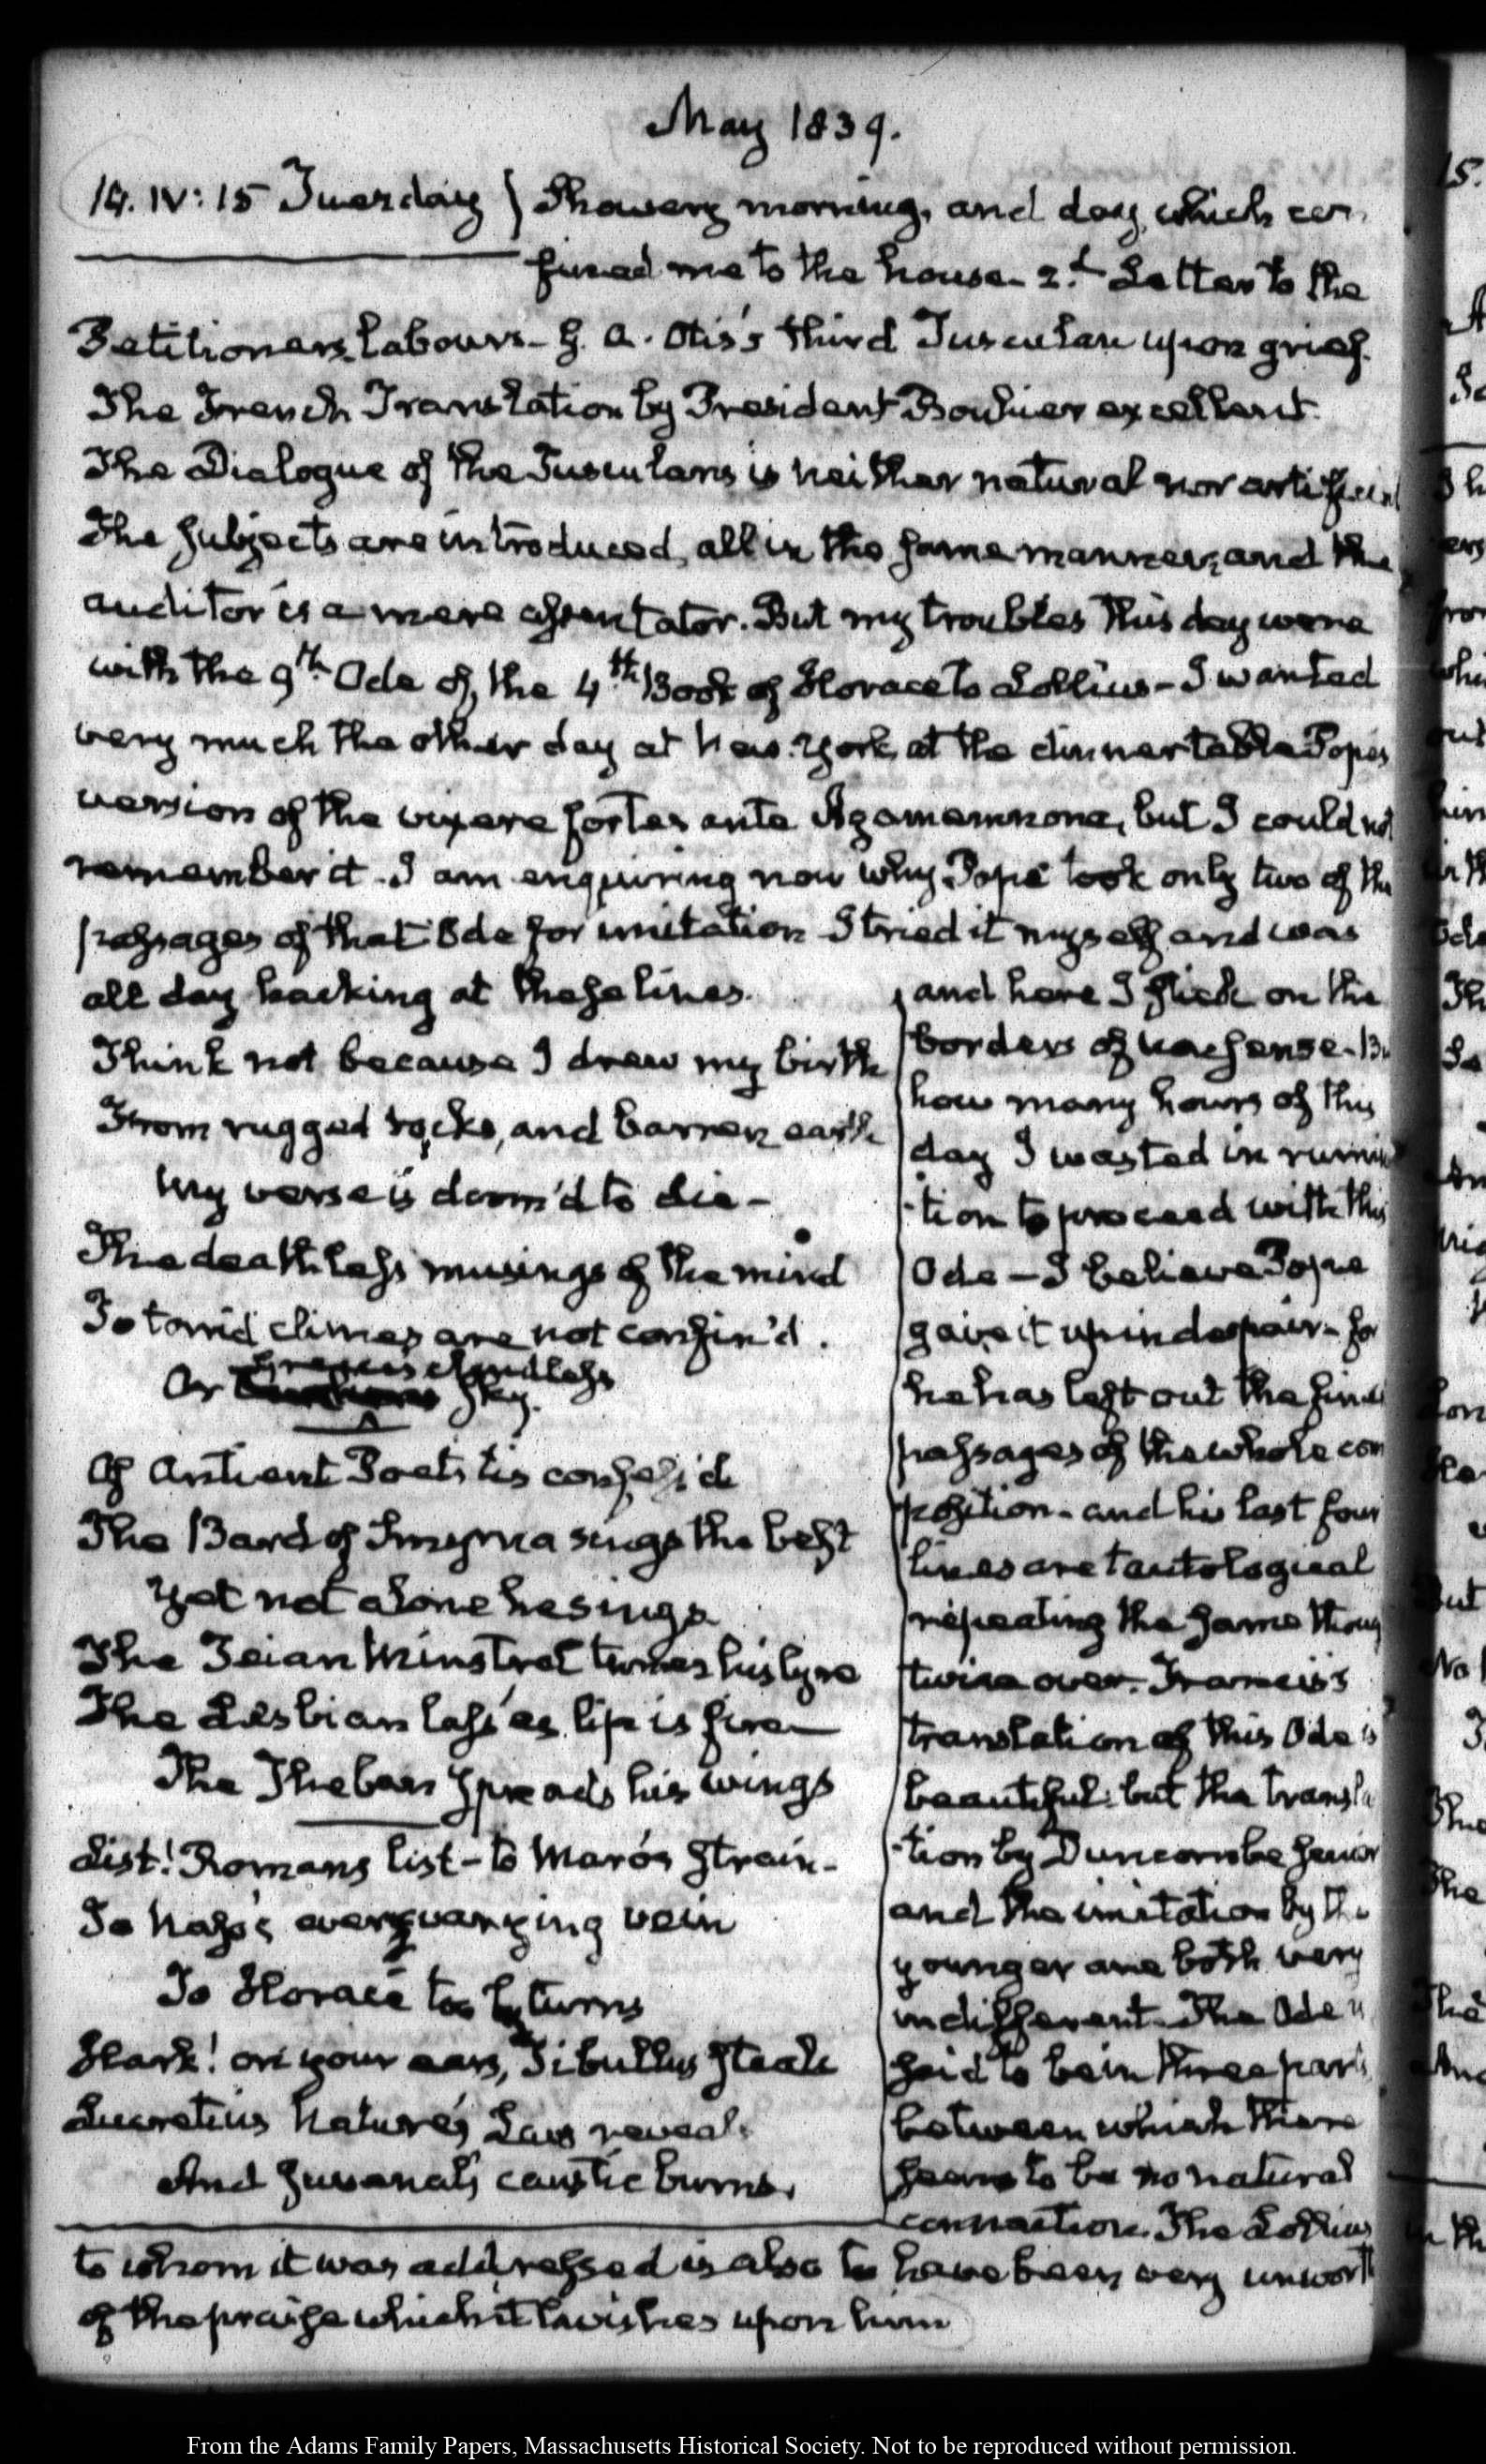 May 1839.
14. IV: 15 Tuesday } Showery morning, and day, which con
fined me to the house. 2.d Letter to the
Petitioners, labours - G. A. Otis's third Tusculan upon grief.
The French Translation by President Bouhier excellent.
The Dialogue of the Tusculans is neither natural nor artificial
The subjects are introduced, all in the same manner, and the
auditor is a mere assentator. But my troubles this day were
with the 9th Ode of, the 4th Book of Horace to Lollius - I wanted
very much the other day at New-York, at the dinner table Popes
version of the vixere fortes ante Agamemnona, but I could not
remember it. I am enquiring now why Pope took only two of the
passages of that Ode for imitation I tried it myself and was
all day hacking at these lines.
Think not because I drew my birth
From rugged rocks, and barren earth
My verse is doom'd to die -
The deathless musings of the mind
To torrid climes are not confin'd.
Or Grecia's cloudless sky.
Of Antient Poets tis confess'd
The Bard of Smyrna sings the best
Yet not alone he sings.
The Teian Minstrel tunes his lyre
The Lesbian lass'es lip is fire
The Theban spreads his wings
List! Romans list - to Maro's strain -
To Naso's ever varying vein
To Horace too by turns
Hark! on your ears, Tibullus steals
Lucretius Nature's Law reveals
And Juvenal's caustic burns.
and here I stick on the
borders of nonsense. Bu
how many hours of this
day I wasted in rumina
tion to proceed with this
Ode - I believe Pope
gave it up in despair - for
he has left out the finest
passages of the whole com
position - and his last four
lines are tautological
repeating the same thoug
twice over. Francis's
translation of this Ode is
beautiful: but the transla
tion by Duncombe senior
and the imitation by the
younger are both very
indifferent. The Ode is
said to be in three parts
between which there
seems to be no natural
connection. The Lollius
to whom it was addressed is also to have been very unworth
of the praise which it lavishes upon him
From the Adams Family Papers, Massachusetts Historical Society. Not to be reproduced without permission.